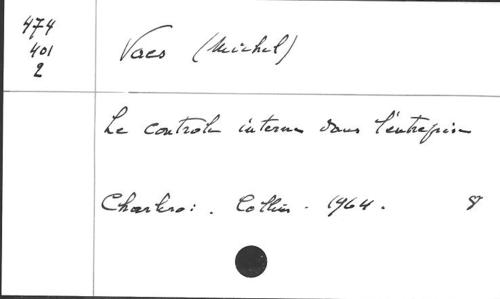 474
401
2
Vaes (Michel)
Le controle interne dans l'entreprise
Charleroi. Collin - 1964. 8